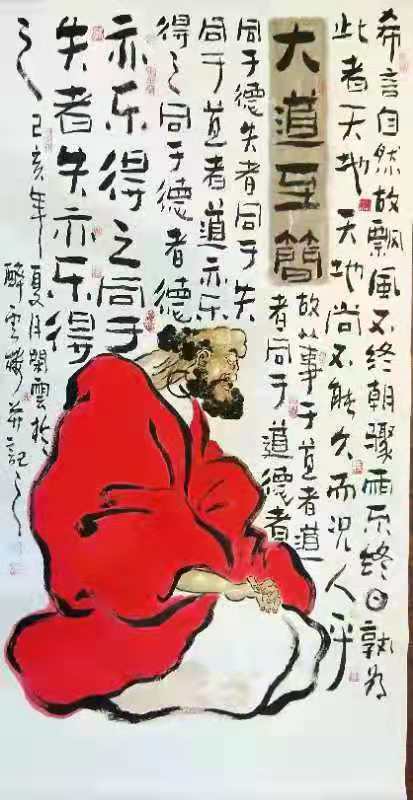 希言自然故飘風不終朝驟雨不終日孰为
此者天地天地尚不能久而况人乎
大道至簡
故从事于道者道
者同于道德者
同于德失者同于失
同于道者道亦乐
得之同于德者德
亦乐得之同于
失者失亦乐得
之己亥年夏月閑雲於
醉雲并記之